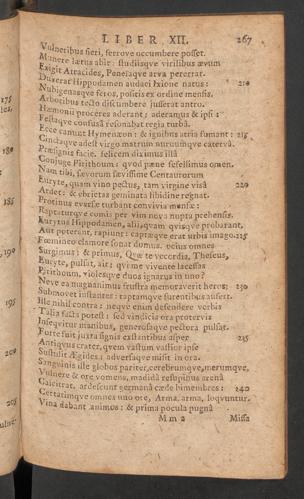 LIBER XII. 267
Vulneribus fieri, ferrove occumbere posset.
Munere lætus abit: studiisque virilibus ævum
Exigit Atracides, Peneïaque arva pererrat.
Duxerat Hippodamen audaci Ixione natus: 210
Nubigenasque feros, positis ex ordine mensis,
Arboribus tecto discumbere jusserat antro.
Hæmonii proceres aderant; aderamus & ipsi:
Festaque confusâ resonabat regia turbâ.
Ecce canunt Hymenæon: & ignibus atria fumant: 215
Cinctaque adest virgo matrum nuruumque catervâ,
Præsignis facie. felicem diximus illâ
Conjuge Pirithoum: quod pæne fefellimus omen.
Nam tibi, sævorum sævissime Centaurorum
Euryte, quam vino pectus, tam virgine visâ 220
Ardet: & ebrietas geminata libidine regnat.
Protinus eversæ turbant convivia mensæ:
Raptaturque comis per vim nova nupta prehensis.
Eurytus Hippodamen, alii, quam quisque probarant,
Aut poterant, rapiunt: captæque erat urbis imago. 225
Fœmineo clamore sonat domus. ocius omnes
Surgimus: & primus, Quæ te vecordia, Theseus,
Euryte, pulsat, ait: qui me vivente lacessas
Pirithoum, violesque duos ignarus in uno?
Neve ea magnanimus frustra memoraverit heros; 230
Submovet instantes: raptamque furentibus aufert.
Ille nihil contra: neque enim defendere verbis
Talia facta potest: sed vindicis ora protervis
Insequitur manibus, generosaque pectora pulsat.
Forte fuit juxta signis exstantibus asper 235
Antiquus crater, quem vastum vastior ipse
Sustulit Ægides: adversaque misit in ora.
Sanguinis ille globos pariter, cerebrumque, merumque,
Vulnere & ore vomens, madidâ resupinus arenâ
Calcitrat. ardescunt germanâ cæde bimembres: 240
Certatimque omnes uno ore, Arma, arma, loquuntur.
Vina dabant animos: & prima pocula pugnâ
M m 2 Missa
175
180
190
195
200
205